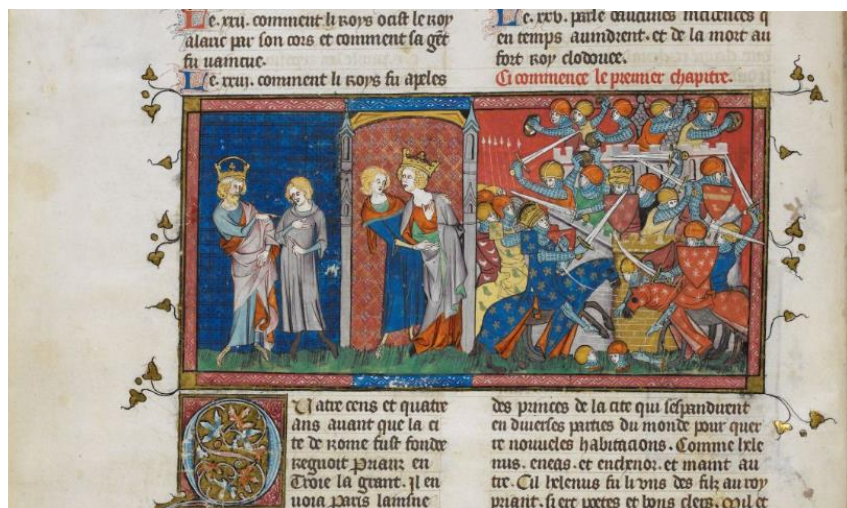 Le .xxii. comment li roys ocist le roy
alanc par son cors et comment sa gẽt
fu uaincue.
Le .xxiii. comment li roys fu apeles
Le .xxv. parle daucunes incidences q
en temps auindrent. et de la mort au
fort roy clodouee.
Ci commence le premier chapitre.
Quatre cens et quatre
ans auant que la ci
te de rome fust fonde
regnoit prianz en
Troie la grant. Il en
uoia paris lainsne
des princes de la cite qui sespandirent
en diuerses parties du monde pour quer
re nouueles habitacions. Comme hele
nus. eneas. et enthenor. et maint au
tre. Cil helenus fu li vns des filz au roy
priant. si ert poetes et bons clers. Mil et